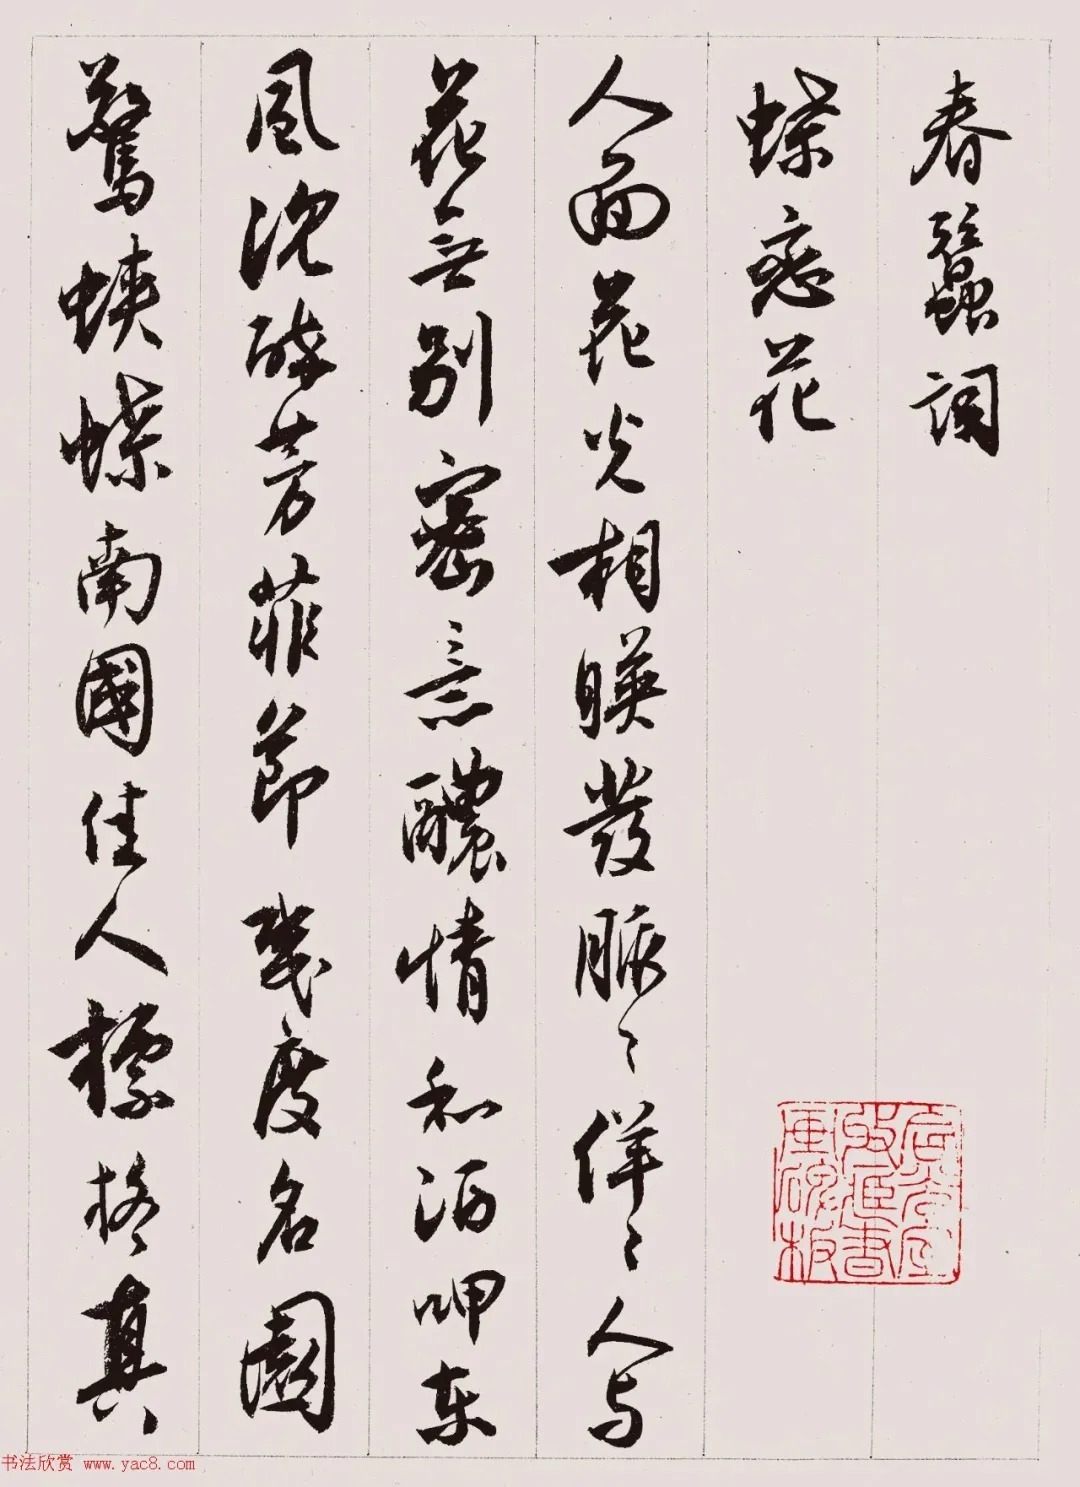 春蠶詞
蝶恋花
人面花光相暎發脈〻佯〻人与
花無別密意醲情和酒呷东
風沈醉芳菲節幾度名園
驚蛺蝶南國佳人標格真
书法欣赏 www.yac8.com